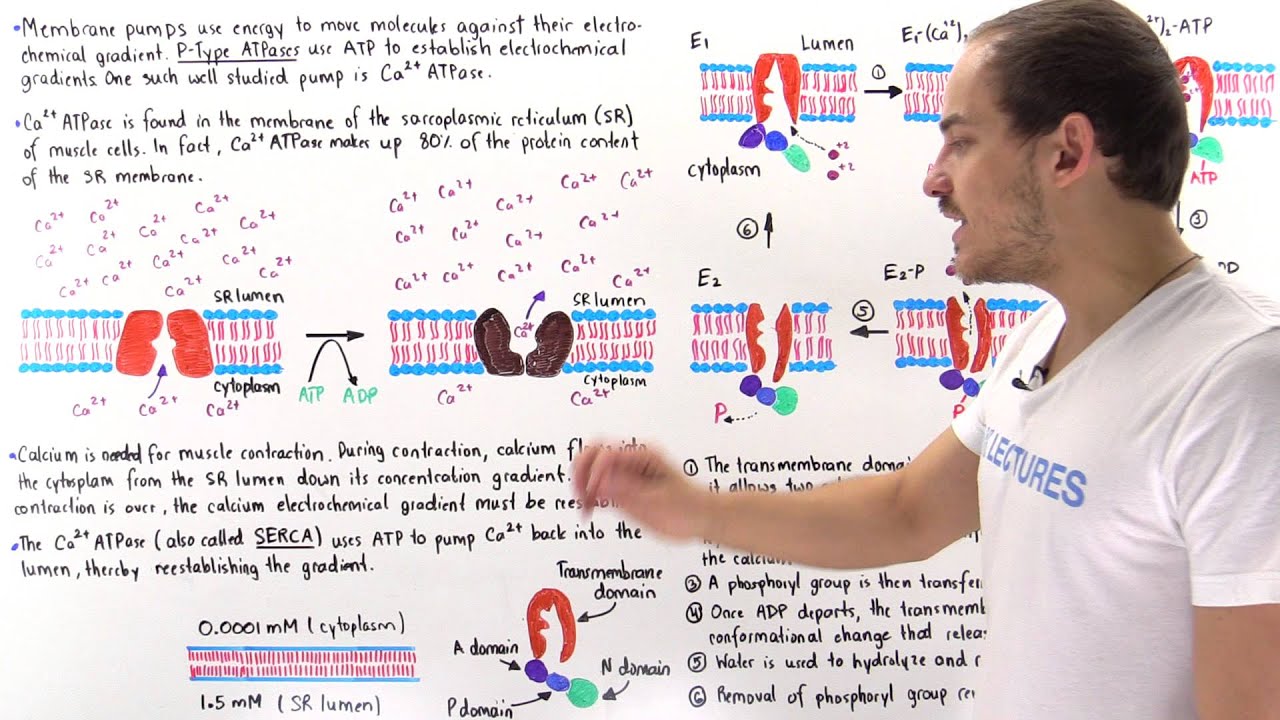 •Membrane pumps use energy to move molecules against their electro-
chemical gradient. P-Type ATPases use ATP to establish electrochemical
gradients. One such well studied pump is Ca²⁺ ATPase.
•Ca²⁺ ATPase is found in the membrane of the sarcoplasmic reticulum (SR)
of muscle cells. In fact, Ca²⁺ ATPase makes up 80% of the protein content
of the SR membrane.
Ca²⁺ Ca²⁺ Ca²⁺ Ca²⁺ Ca²⁺
Ca²⁺ Ca²⁺ Ca²⁺
Ca²⁺ Ca²⁺ Ca²⁺ Ca²⁺
Ca²⁺ Ca²⁺ Ca²⁺
SR lumen
Cytoplasm
Ca²⁺ Ca²⁺ Ca²⁺
ATP ADP
Ca²⁺ Ca²⁺ Ca²⁺ Ca²⁺ Ca²⁺
Ca²⁺ Ca²⁺ Ca²⁺ Ca²⁺
Ca²⁺ Ca²⁺ Ca²⁺ Ca²⁺ Ca²⁺
SR lumen
Ca²⁺
Cytoplasm
Ca²⁺ Ca²⁺
•Calcium is needed for muscle contraction. During contraction, calcium
the cytoplam from the SR lumen down its concentration gradient.
contraction is over, the calcium electrochemical gradient must be
•The Ca²⁺ ATPase (also called SERCA) uses ATP to pump Ca²⁺ back into the
lumen, thereby reestablishing the gradient.
0.0001 mM (cytoplasm)
1.5 mM (SR lumen)
Transmembrane
domain
A domain
P domain
N domain
E₁
Lumen
①
Cytoplasm
+2
+2
)₂-ATP
ATP
③
⑥
E₂
E₂-P
⑤
P
P
① The transmembrane
it allows two
the
③ A phosphoryl group is then
④ Once ADP departs, the
conformational change that
⑤ Water is used to hydrolyze and
⑥ Removal of phosphoryl group
LECTURES